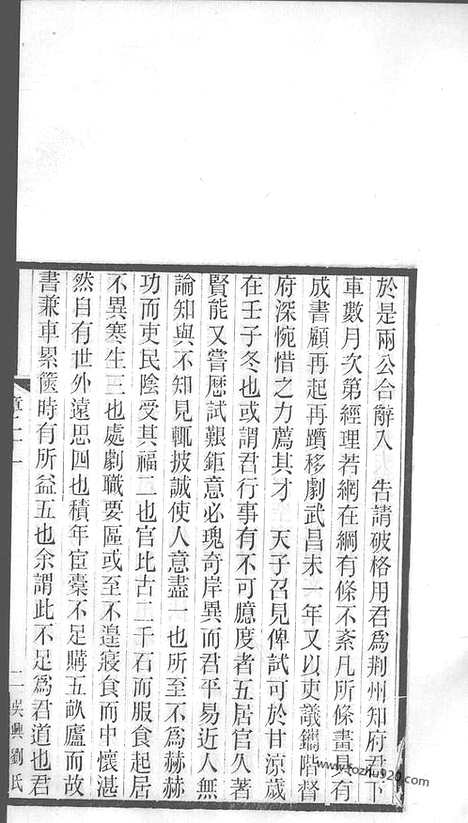 於是兩公合辭入　告請破格用君爲荆州知府君下
車數月次第經理若網在綱有條不紊凡所條畫具有
成書顧再起再躓移劇武昌未一年又以吏議鐫階督
府深惋惜之力薦其才　天子召見俾試可於甘涼歲
在壬子冬也或謂君行事有不可臆度者五居官久著
賢能又嘗歷試艱鉅意必瑰奇岸異而君平易近人無
論知與不知見輒披誠使人意盡一也所至不爲赫赫
功而吏民陰受其福二也官比古二千石而服食起居
不異寒生三也處劇職要區或至不遑寢食而中懷湛
然自有世外遠思四也積年宦橐不足購五畝廬而故
書兼車累篋時有所益五也余謂此不足爲君道也君
二
吳興劉氏
www.tozhu920.com